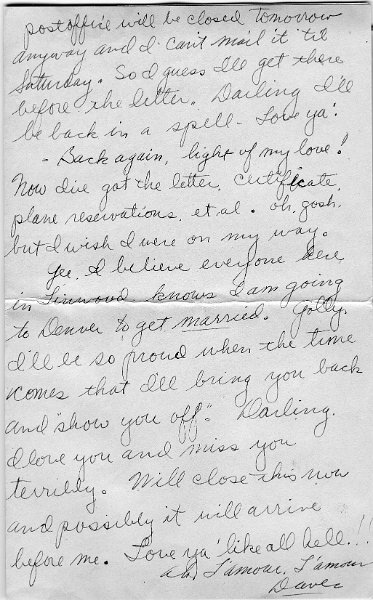 postoffice will be closed tomorrow
anyway and I can't mail it 'til
Saturday. So I guess I'll get there
before the letter. Darling I'll
be back in a spell - Love ya'.
- Back again, light of my love!
Now I've got the letter, certificate,
plane reservations, et. al. Oh, gosh,
but I wish I were on my way.
Gee, I believe everyone here
in knows I am going
to Denver to get married. Golly,
I'll be so proud when the time
comes that I'll bring you back
and "show you off". Darling,
I love you and miss you
terribly. Will close this now
and possibly it will arrive
before me. Love ya' like all hell!!
L'amour, L'amour
Dave